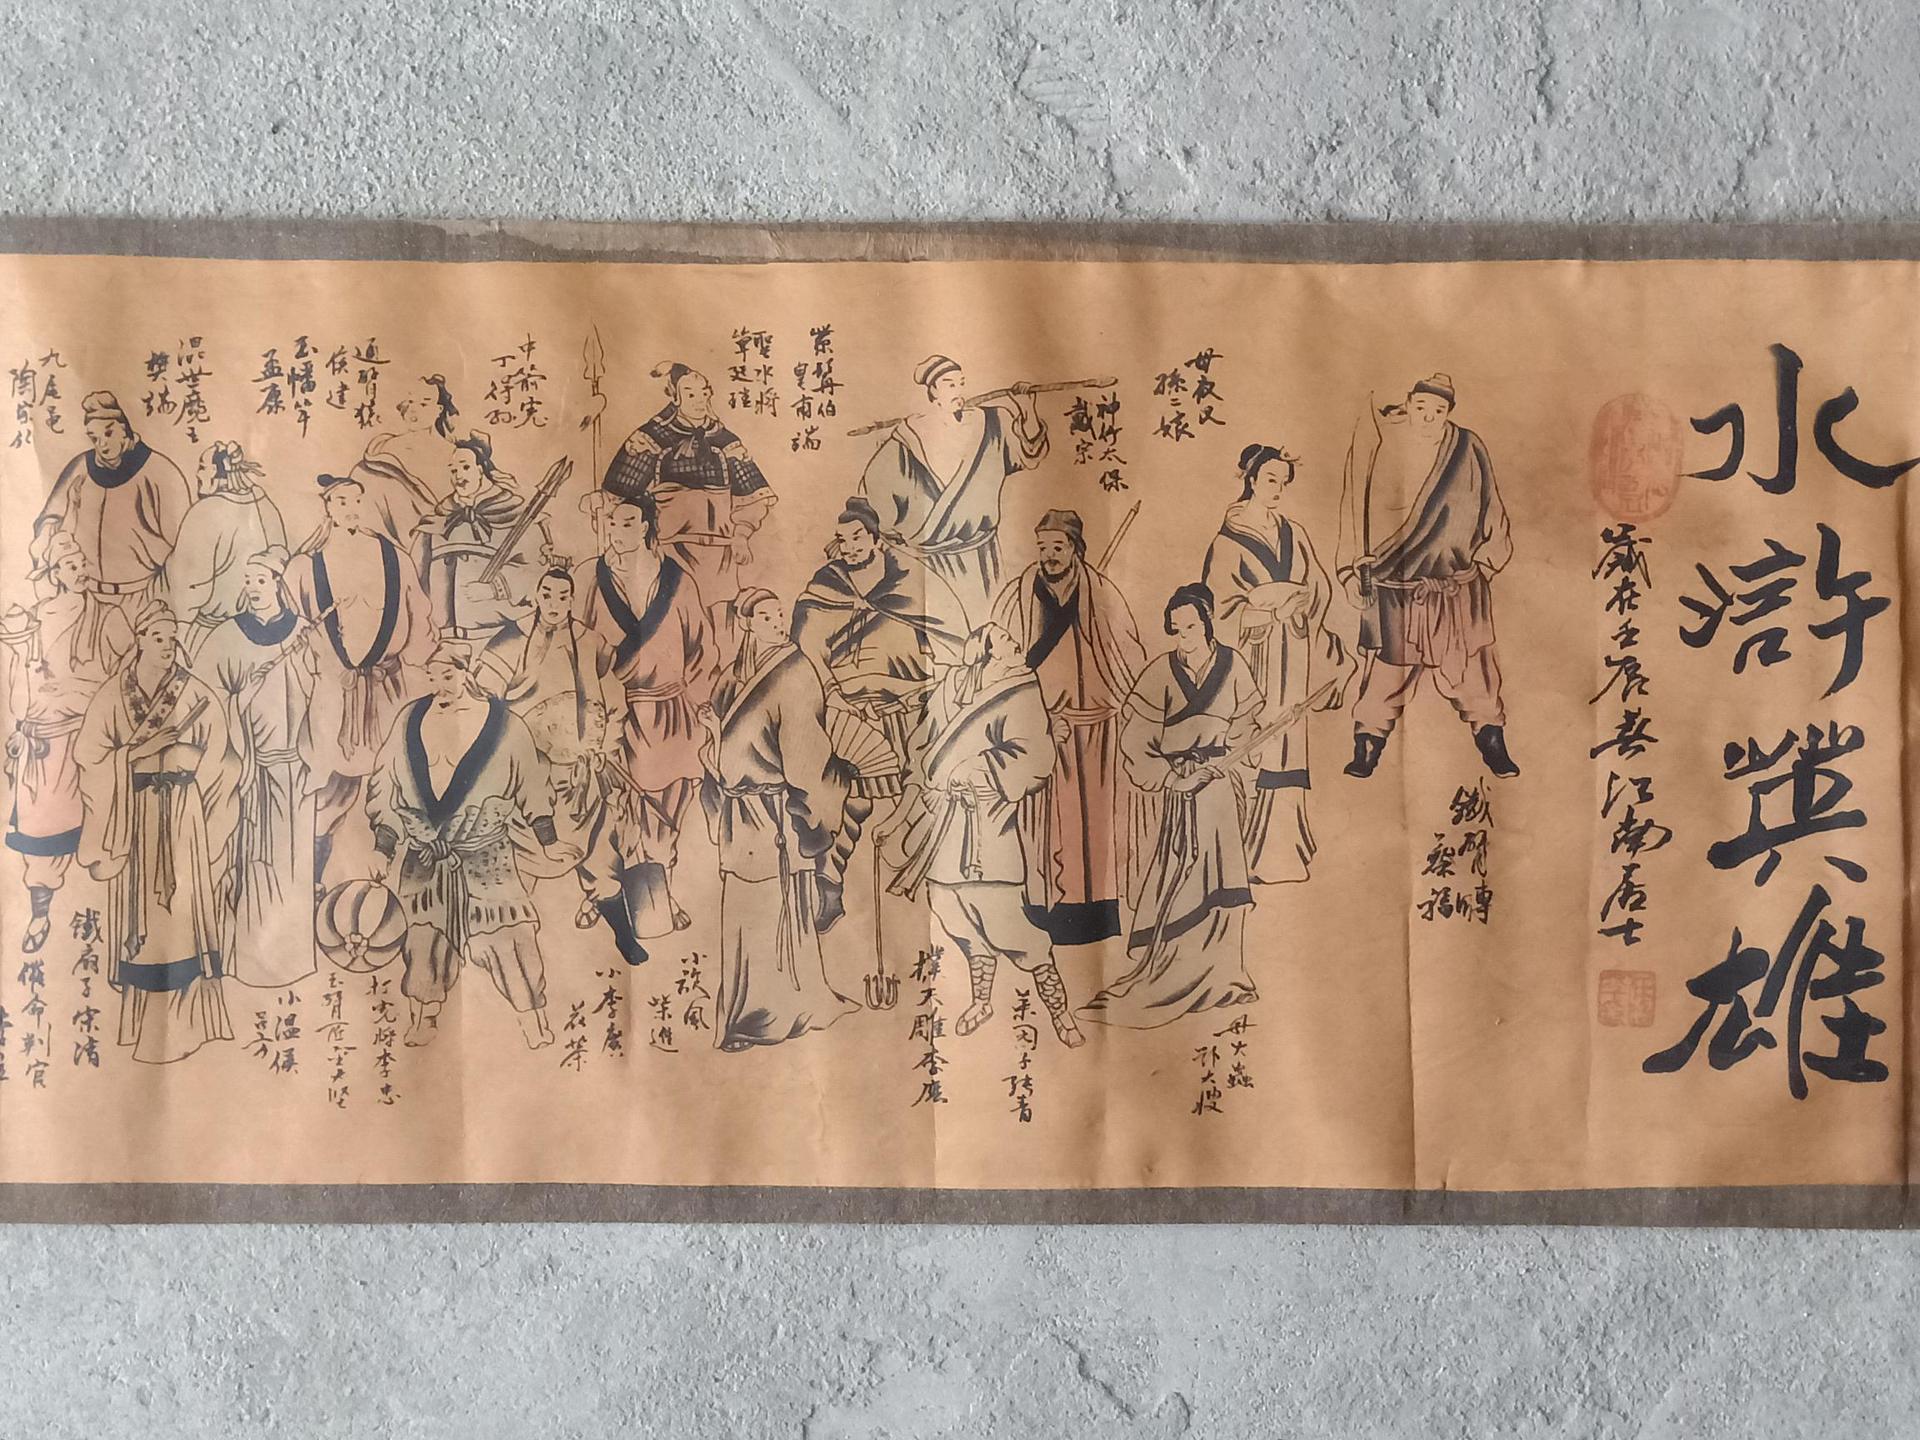 水滸英雄
歲在壬辰春江南居士
鐵臂膊
蔡福
母夜叉
孫二娘
母大蟲
顾大嫂
神行太保
戴宗
菜园子张青
撲天雕李應
紫髯伯
皇甫端
聖水將
單廷珪
小旋風
柴進
小李廣
花荣
中箭虎
丁得孙
打虎将李忠
玉臂匠金大坚
通臂猿
侯建
玉幡竿
孟康
小温侯
吕方
混世魔王
樊瑞
鐵扇子宋清
九尾龟
陶宗旺
催命判官
李立